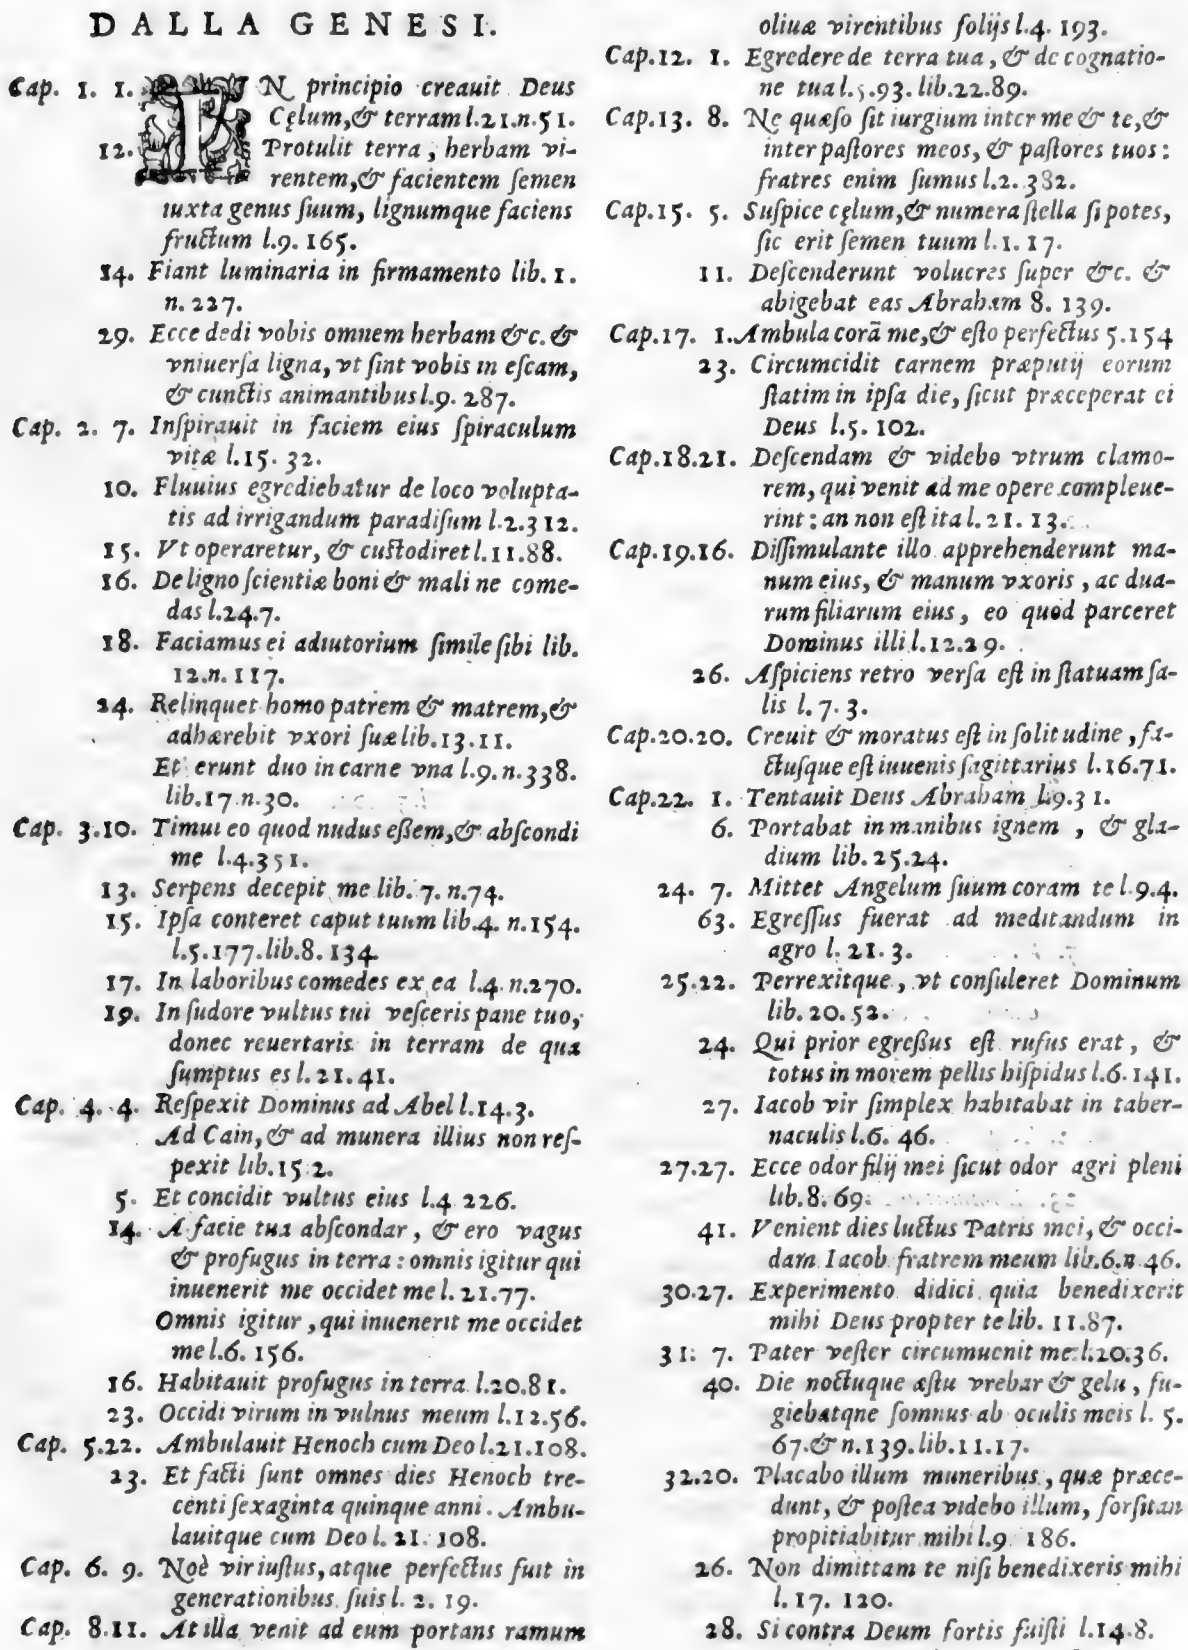 DALLA GENESI.
Cap. 1. 1. IN principio creauit Deus
Cęlum,& terram l.21.n.51.
12. Protulit terra, herbam vi-
rentem,& facientem ſemen
iuxta genus ſuum, lignumque faciens
fructum l.9. 165.
14. Fiant luminaria in firmamento lib. 1.
n. 227.
29. Ecce dedi vobis omnem herbam &c. &
vniuerſa ligna, vt ſint vobis in eſcam,
& cunctis animantibus l.9. 287.
Cap. 2. 7. Inſpirauit in faciem eius ſpiraculum
vitæ l.15. 32.
10. Fluuius egrediebatur de loco volupta-
tis ad irrigandum paradiſum l.2.312.
15. Vt operaretur, & cuſtodiret l.11.88.
16. De ligno ſcientiæ boni & mali ne come-
das l.24.7.
18. Faciamus ei adiutorium ſimile ſibi lib.
12.n.117.
24. Relinquet homo patrem & matrem,&
adhærebit vxori ſuæ lib.13.11.
Et erunt duo in carne vna l.9.n.338.
lib.17.n.30.
Cap. 3.10. Timui eo quod nudus eßem,& abſcondi
me l.4.351.
13. Serpens decepit me lib. 7. n.74.
15. Ipſa conteret caput tuum lib.4. n.154.
l.5.177.lib.8.134
17. In laboribus comedes ex ea l.4.n.270.
19. In ſudore vultus tui veſceris pane tuo,
donec reuertaris in terram de qua
ſumptus es l.21.41.
Cap. 4. 4. Reſpexit Dominus ad Abel l.14.3.
Ad Cain,& ad munera illius non reſ-
pexit lib.15.2.
5. Et concidit vultus eius l.4 226.
14. A facie tua abſcondar, & ero vagus
& profugus in terra : omnis igitur qui
inuenerit me occidet me l. 21.77.
Omnis igitur, qui inuenerit me occidet
me l.6. 156.
16. Habitauit profugus in terra l.20.81.
23. Occidi virum in vulnus meum l.12.56.
Cap. 5.22. Ambulauit Henoch cum Deo l.21.108.
23. Et facti ſunt omnes dies Henoch tre-
centi ſexaginta quinque anni. Ambu-
lauitque cum Deo l. 21. 108.
Cap. 6. 9. Noè vir iuſtus, atque perfectus fuit in
generationibus ſuis l. 2. 19.
Cap. 8.11. At illa venit ad eum portans ramum
oliuæ virentibus folijs l.4. 193.
Cap.12. 1. Egredere de terra tua, & de cognatio-
ne tua l.5.93. lib.22.89.
Cap.13. 8. Ne quæſo ſit iurgium inter me & te,&
inter paſtores meos, & paſtores tuos:
fratres enim ſumus l.2. 382.
Cap.15. 5. Suſpice cęlum,& numera ſtella ſi potes,
ſic erit ſemen tuum l. 1. 17.
11. Deſcenderunt volucres ſuper &c. &
abigebat eas Abraham 8. 139.
Cap.17. 1. Ambula corã me,& eſto perfectus 5.154
23. Circumcidit carnem præputij eorum
ſtatim in ipſa die, ſicut præceperat ei
Deus l.5. 102.
Cap.18.21. Deſcendam & videbo vtrum clamo-
rem, qui venit ad me opere compleue-
rint : an non eſt ita l. 21. 13.
Cap.19.16. Diſſimulante illo apprehenderunt ma-
num eius, & manum vxoris, ac dua-
rum filiarum eius, eo quod parceret
Dominus illi l.12.29.
26. Aſpiciens retro verſa eſt in ſtatuam ſa-
lis l. 7. 3.
Cap.20.20. Creuit & moratus eſt in ſolitudine, fa-
ctuſque eſt iuuenis ſagittarius l.16.71.
Cap.22. 1. Tentauit Deus Abraham l.9.31.
6. Portabat in manibus ignem, & gla-
dium lib. 25.24.
24. 7. Mittet Angelum ſuum coram te l.9.4.
63. Egreſſus fuerat ad meditandum in
agro l. 21. 3.
25.22. Perrexitque, vt conſuleret Dominum
lib. 20. 52.
24. Qui prior egreßus eſt rufus erat, &
totus in morem pellis hiſpidus l.6. 141.
27. Iacob vir ſimplex habitabat in taber-
naculis l.6. 46.
27.27. Ecce odor filij mei ſicut odor agri pleni
lib.8. 69.
41. Venient dies luctus Patris mei, & occi-
dam Iacob fratrem meum lib.6.n 46.
30.27. Experimento didici quia benedixerit
mihi Deus propter te lib. 11.87.
31. 7. Pater veſter circumuenit me l.20.36.
40. Die noctuque æſtu vrebar & gelu, fu-
giebatqne ſomnus ab oculis meis l. 5.
67.& n.139.lib.11.17.
32.20. Placabo illum muneribus, quæ præce-
dunt, & poſtea videbo illum, forſitan
propitiabitur mihi l.9 186.
26. Non dimittam te niſi benedixeris mihi
l. 17. 120.
28. Si contra Deum fortis fuiſti l.14.8.